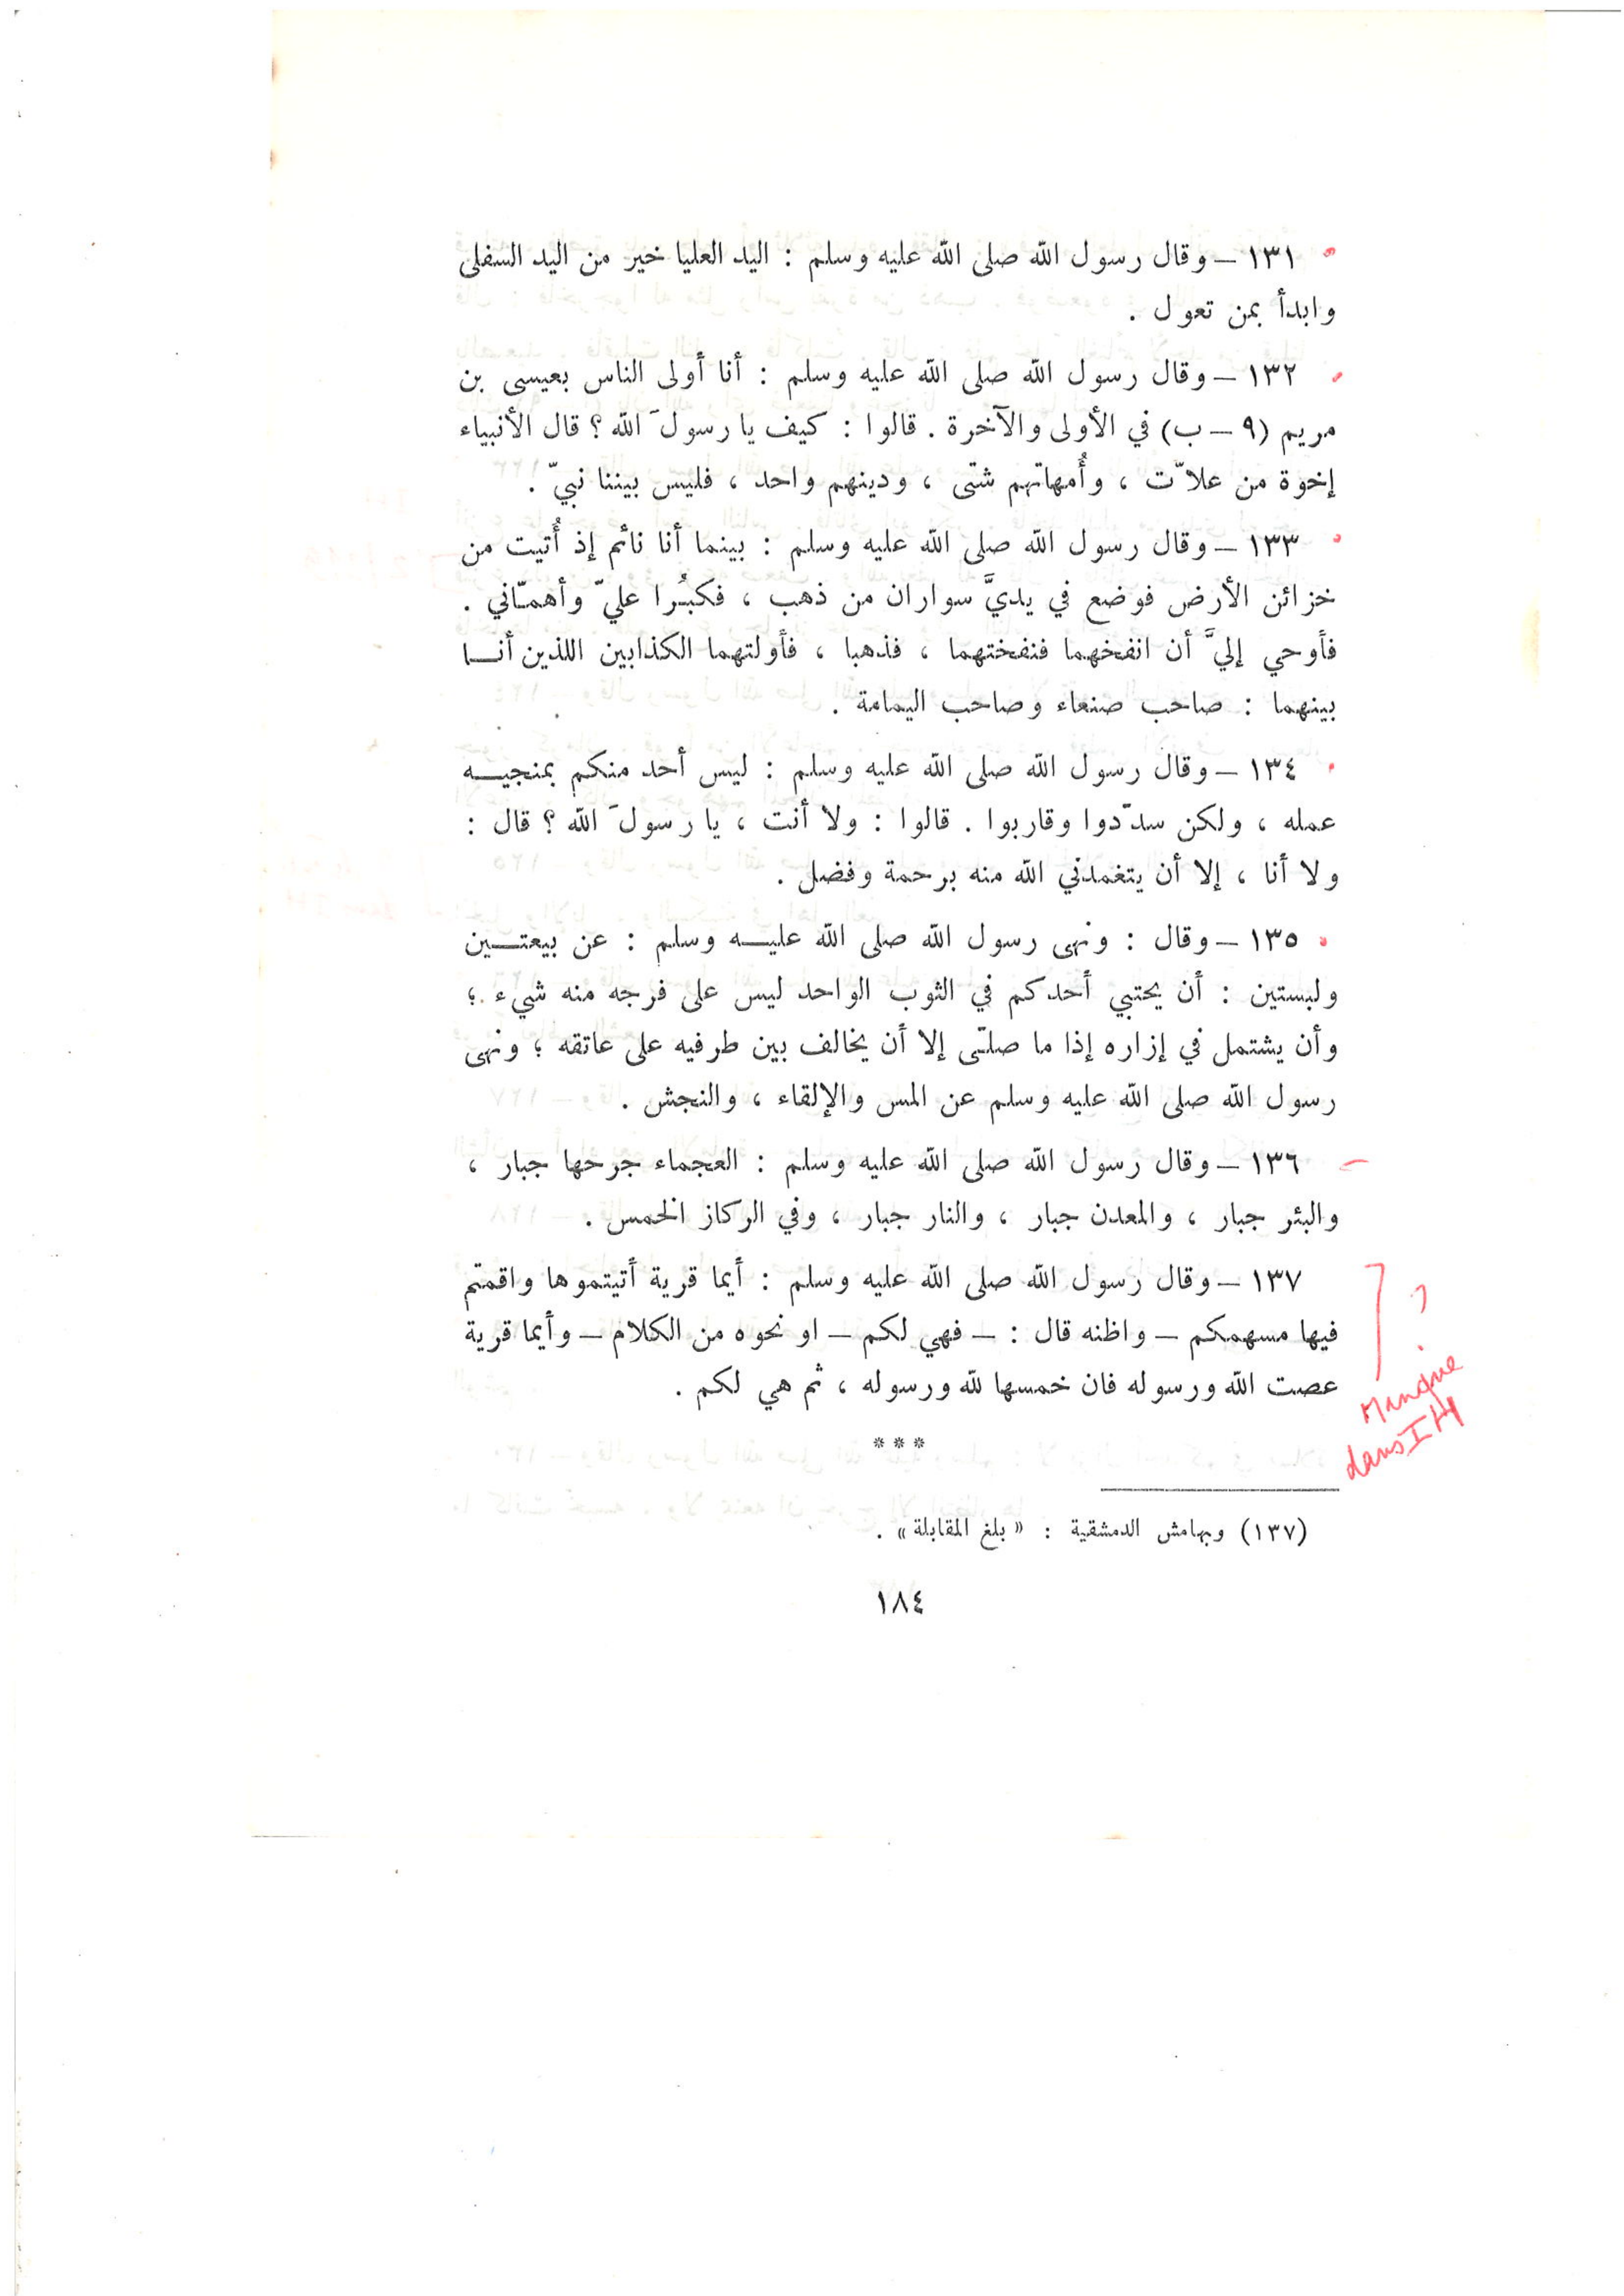 ١٣١ – وقال رسول الله صلى الله عليه وسلم : اليد العليا خير من اليد السفلى
وابدأ بمن تعول .
١٣٢ – وقال رسول الله صلى الله عليه وسلم : أنا أولى الناس بعيسى بن
مريم (٩ – ب) في الأولى والآخرة . قالوا : كيف يا رسولَ الله ؟ قال الأنبياء
إخوة من علاّت ، وأُمهاتهم شتى ، ودينهم واحد ، فليس بيننا نبيّ .
١٣٣ – وقال رسول الله صلى الله عليه وسلم : بينما أنا نائم إذ أُتيت من
خزائن الأرض فوضع في يديَّ سواران من ذهب ، فكبُرا عليّ وأهمّاني .
فأوحي إليَّ أن انفخهما فنفختهما ، فذهبا ، فأولتهما الكذابين اللذين أنا
بينهما : صاحب صنعاء وصاحب اليمامة .
١٣٤ – وقال رسول الله صلى الله عليه وسلم : ليس أحد منكم بمنجيه
عمله ، ولكن سدّدوا وقاربوا . قالوا : ولا أنت ، يا رسولَ الله ؟ قال :
ولا أنا ، إلا أن يتغمدني الله منه برحمة وفضل .
١٣٥ – وقال : ونهى رسول الله صلى الله عليه وسلم : عن بيعتين
ولبستين : أن يحتبي أحدكم في الثوب الواحد ليس على فرجه منه شيء ؛
وأن يشتمل في إزاره إذا ما صلّى إلا أن يخالف بين طرفيه على عاتقه ؛ ونهى
رسول الله صلى الله عليه وسلم عن المس والإلقاء ، والنجش .
١٣٦ – وقال رسول الله صلى الله عليه وسلم : العجماء جرحها جبار ،
والبئر جبار ، والمعدن جبار ، والنار جبار ، وفي الركاز الخمس .
١٣٧ – وقال رسول الله صلى الله عليه وسلم : أيما قرية أتيتموها واقمتم
فيها مسهمكم – واظنه قال : – فهي لكم – او نحوه من الكلام – وأيما قرية
عصت الله ورسوله فان خمسها لله ورسوله ، ثم هي لكم .
?
Manque
dans IH
* * *
(١٣٧) وبهامش الدمشقية : « بلغ المقابلة » .
١٨٤